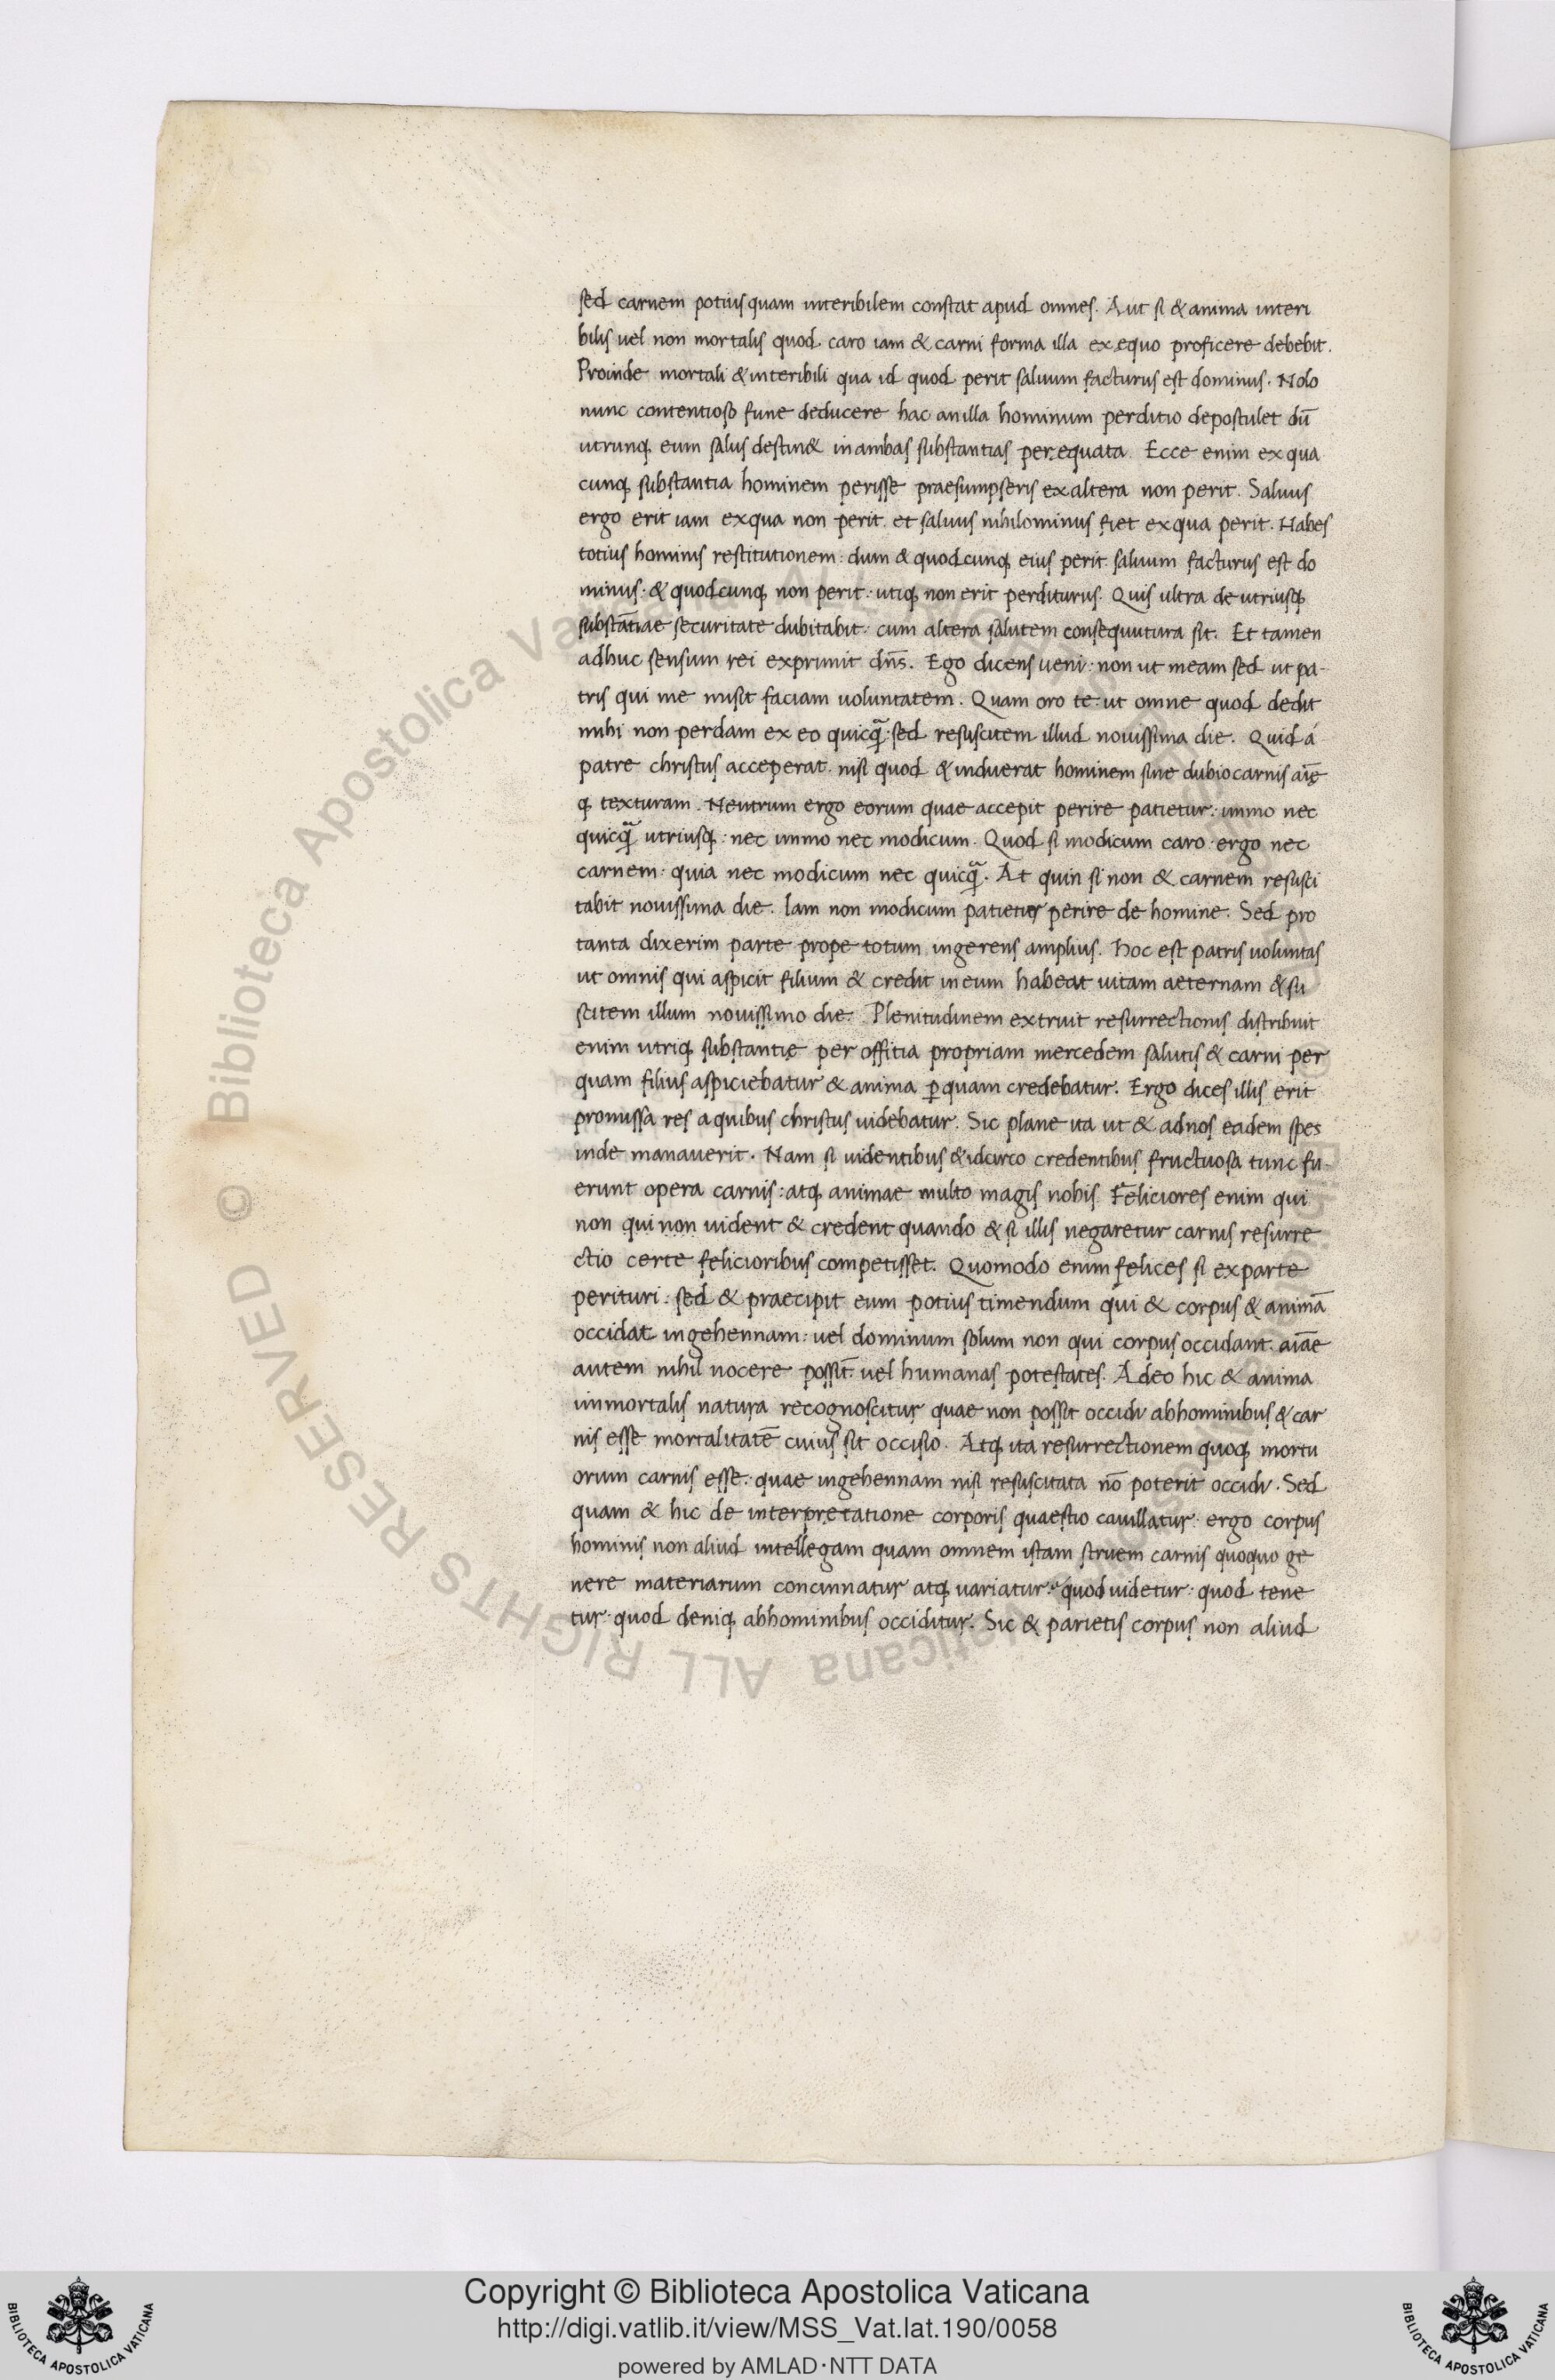 sed carnem potius quam interibilem constat apud omnes. Aut si & anima interi
bilis uel non mortalis quod. caro iam & carni forma illa ex ęquo proficere debebit.
Proinde mortali & interibili qua id quod perit saluum facturus est dominus. Nolo
nunc contentioso fune deducere hac an illa hominum perditio depostulet dū
utrunq; eum salus destin& in ambas substantias per ęquata. Ecce enim ex qua
cunq; substantia hominem perisse praesumpseris ex altera non perit. Saluus
ergo erit iam ex qua non perit. et saluus nihilominus fiet ex qua perit. Habes
totius hominis restitutionem: dum & quodcunq; eius perit. saluum facturus est do
minus: & quodcunq; non perit: utiq; non erit perditurus. Quis ultra de utriusq;
substātiae securitate dubitabit: cum altera salutem consequutura sit. Et tamen
adhuc sensum rei exprimit dn̄s. Ego dicens ueni: non ut meam sed ut pa-
tris qui me misit faciam uoluntatem. Quam oro te: ut omne quod dedit
mihi non perdam ex eo quicq̄: sed resuscitem illud nouissima die. Quid á
patre christus acceperat. nisi quod & induerat hominem sine dubio carnis aīę
q; texturam. Neutrum ergo eorum quae accepit perire patietur: immo nec
quicq̄ utriusq;: nec immo nec modicum. Quod si modicum caro: ergo nec
carnem: quia nec modicum nec quicq̄. At quin si non & carnem resusci
tabit nouissima die. Iam non modicum patietur perire de homine. Sed pro
tanta dixerim parte prope totum ingerens amplius. Hoc est patris uoluntas
ut omnis qui aspicit filium & credit in eum habeat uitam aeternam & su
scitem illum nouissimo die. Plenitudinem extruit resurrectionis distribuit
enim utriq; substantię per offitia propriam mercedem salutis & carni per
quam filius aspiciebatur & anima ꝑ quam credebatur. Ergo dices illis erit
promissa res a quibus christus uidebatur. Sic plane ita ut & ad nos eadem spes
inde manauerit. Nam si uidentibus & idcirco credentibus fructuosa tunc fu-
erunt opera carnis: atq; animae multo magis nobis. Feliciores enim qui
non qui non uident & credent quando & si illis negaretur carnis resurre
ctio certe felicioribus competisset. Quomodo enim felices si ex parte
perituri. sed & praecipit eum potius timendum qui & corpus & animā
occidat in gehennam: uel dominum solum non qui corpus occidant. aīae
autem nihil nocere possīt. uel humanas potestates. Adeo hic & anima
immortalis natura recognoscitur quae non possit occidi ab hominibus & car
nis esse mortalitatē cuius sit occisio. Atq; ita resurrectionem quoq; mortu
orum carnis esse: quae in gehennam nisi resuscitata nō poterit occidi. Sed
quam & hic de interpretatione corporis quaestio cauillatur: ergo corpus
hominis non aliud intellegam quam omnem istam struem carnis quoquo ge
nere materiarum concinnatur atq; uariatur: quod uidetur: quod tene
tur: quod deniq; ab hominibus occiditur. Sic & parietis corpus non aliud
© Biblioteca Apostolica Vaticana ALL RIGHTS RESERVED
Copyright © Biblioteca Apostolica Vaticana
http://digi.vatlib.it/view/MSS_Vat.lat.190/0058
powered by AMLAD·NTT DATA
BIBLIOTECA APOSTOLICA VATICANA
BIBLIOTECA APOSTOLICA VATICANA